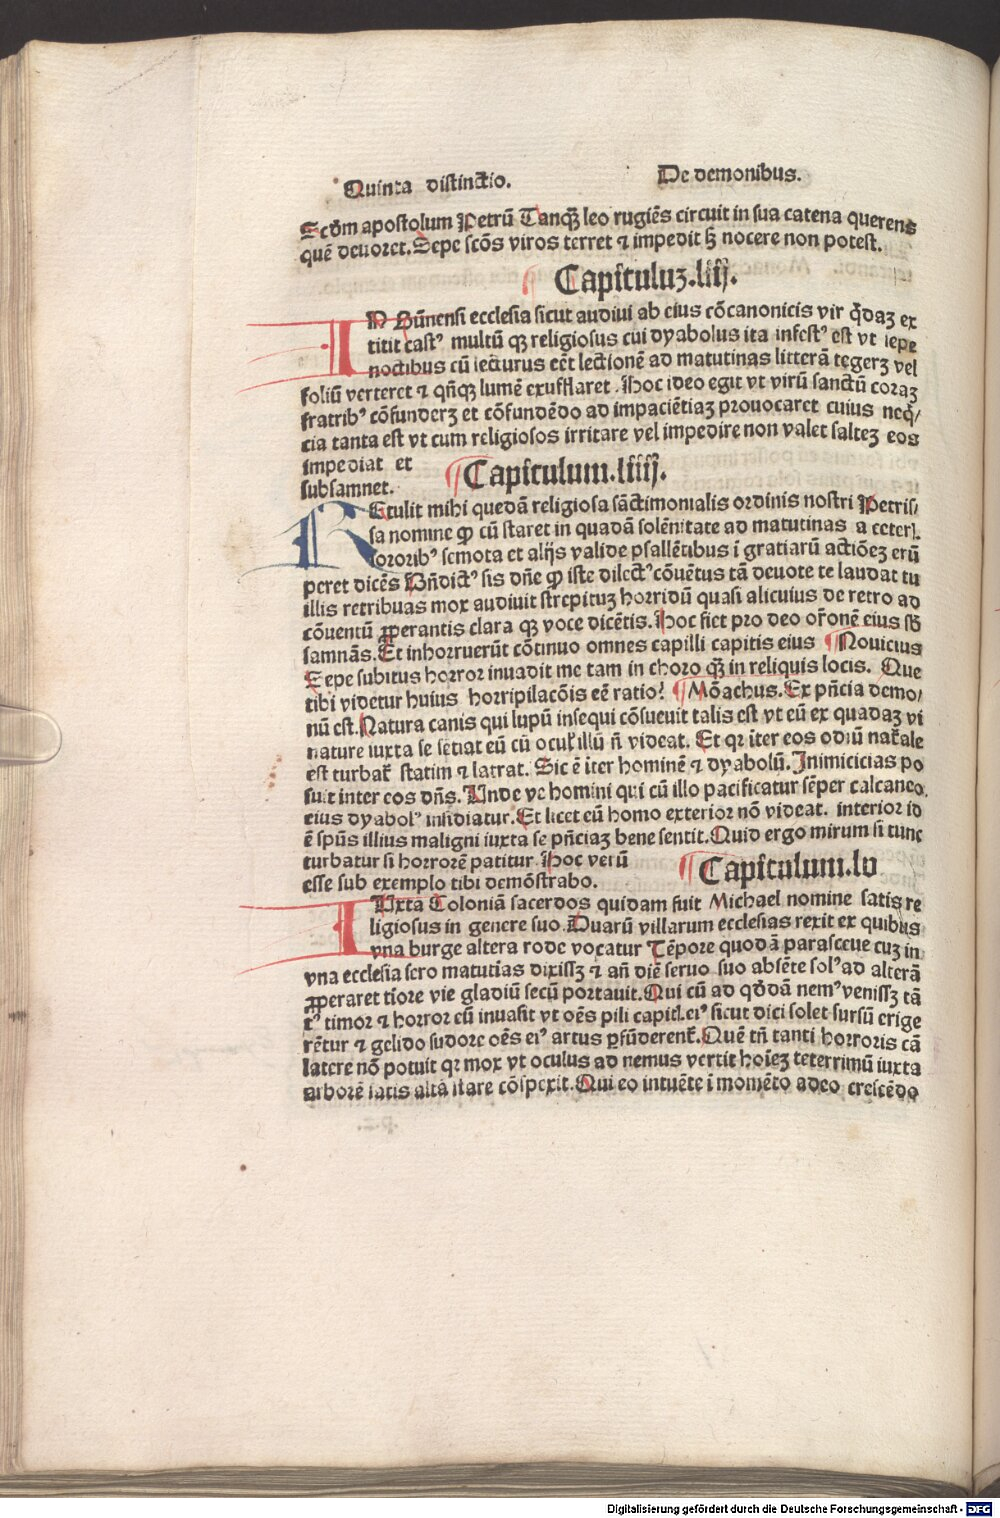 Quinta distinctio. De demonibus.
Scd̄m apostolum Petrū Tanq̄ꝫ leo rugiēs circuit in sua catena querens
quē deuoret. Sepe scōs viros terret ⁊ impedit hꝫ nocere non potest.
Capituluꝫ.liij.
IN Būnensi ecclesia sicut audiui ab eius cōcanonicis vir q̇daꝫ ex
titit castꝰ multū qꝫ religiosus cui dyabolus ita infestꝰ est vt sepe
noctibus cū lecturus eēt lectionē ad matutinas litterā tegerꝫ vel
foliū verteret ⁊ qn̄qꝫ lumē exufflaret. Hoc ideo egit vt virū sanctū coraꝫ
fratribꝰ cōfunderꝫ et cōfundēdo ad impaciētiaꝫ prouocaret cuius neq̇/
cia tanta est vt cum religiosos irritare vel impedire non valet salteꝫ eos
impediat et
subsamnet.
Capitulum.liiij.
REtulit mihi quedā religiosa sāctimonialis ordinis nostri Petris/
sa nomine ꝙ cū staret in quadā solēnitate ad matutinas a ceter̄.
sororibꝰ semota et alijs valide psallētibus ī gratiarū actiōeꝫ erū
peret dicēs Bn̄dictꝰ sis dn̄e ꝙ iste dilectꝰ cōuētus tā deuote te laudat tu
illis retribuas mox audiuit strepituꝫ horridū quasi alicuius de retro ad
cōuentū ꝓperantis clara qꝫ voce dicētis. Hoc fiet pro deo or̄onē eius sb̄
samnās. Et inhorruerūt cōtinuo omnes capilli capitis eius ¶ Nouicius
Sepe subitus horror inuadit me tam in choro q̄ꝫ in reliquis locis. Que
tibi videtur huius horripilacōis eē ratio? ¶ Mōachus. Ex pn̄cia demo/
nū est. Natura canis qui lupū insequi cōsueuit talis est vt eū ex quadaꝫ vi
nature iuxta se sētiat eū cū ocul̄ illū n̄ videat. Et qr īter eos odiū nat̄ale
est turbat̄ statim ⁊ latrat. Sic ē īter hominē ⁊ dyabolū. Inimicicias po
suit inter eos dn̄s. Unde ve homini qui cū illo pacificatur sēper calcaneo.
eius dyabolꝰ insidiatur. Et licet eū homo exterior nō videat. interior id
ē spūs illius maligni iuxta se pn̄ciaꝫ bene sentit. Quid ergo mirum si tunc
turbatur si horrorē patitur. Hoc verū
esse sub exemplo tibi demōstrabo.
Capitulum.lv
IUxta Coloniā sacerdos quidam fuit Michael nomine satis re
ligiosus in genere suo. Duarū villarum ecclesias rexit ex quibus
vna burge altera rode vocatur Tēpore quodā parasceue cuꝫ in
vna ecclesia sero matutīas dixissꝫ ⁊ an̄ diē seruo suo absēte solꝰ ad alterā
ꝓperaret tiore vie gladiū secū portauit. Qui cū ad qd̄dā nemꝰ venissꝫ tā
tꝰ timor ⁊ horror eū inuasit vt oēs pili capitl̄.eiꝰ sicut dici solet sursū erige
rētur ⁊ gelido sudore oēs eiꝰ artus ꝑfūderent̄. Quē tn̄ tanti horroris cā
latere nō potuit qr mox vt oculus ad nemus vertit hoīeꝫ teterrimū iuxta
arborē satis altā stare cōspexit. Qui eo intuēte ī momēto adeo crescēdo
Digitalisierung gefördert durch die Deutsche Forschungsgemeinschaft - DFG